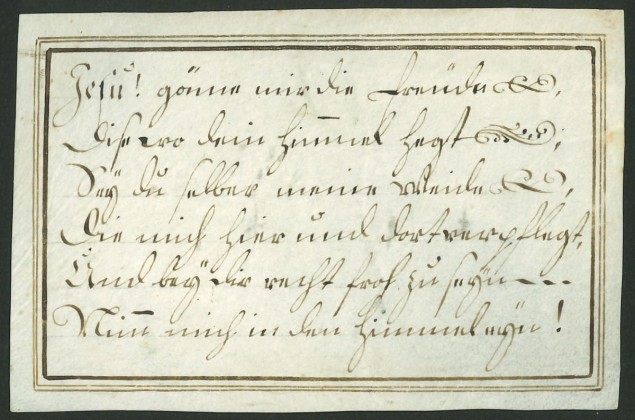 Jesu! gönne mir die Freude,
Dise wo dein Himmel hegt;
Sey du selber meine Weide,
Die mich hier und dort verpflegt,
Und bey dir recht froh zu seyn---
Nim̅ mich in den Himmel eyn!